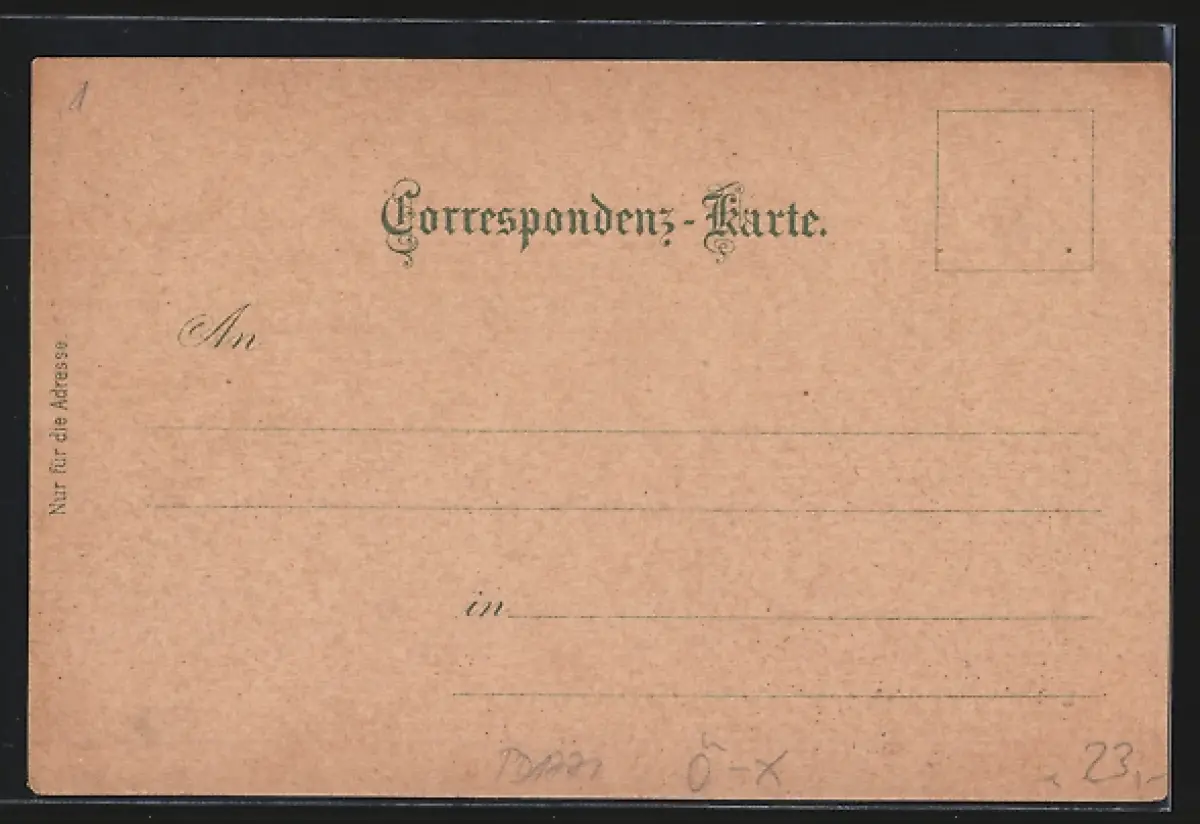 1
Correspondenz-Karte.
An
Nur für die Adresse.
in
Ö-X
23,-